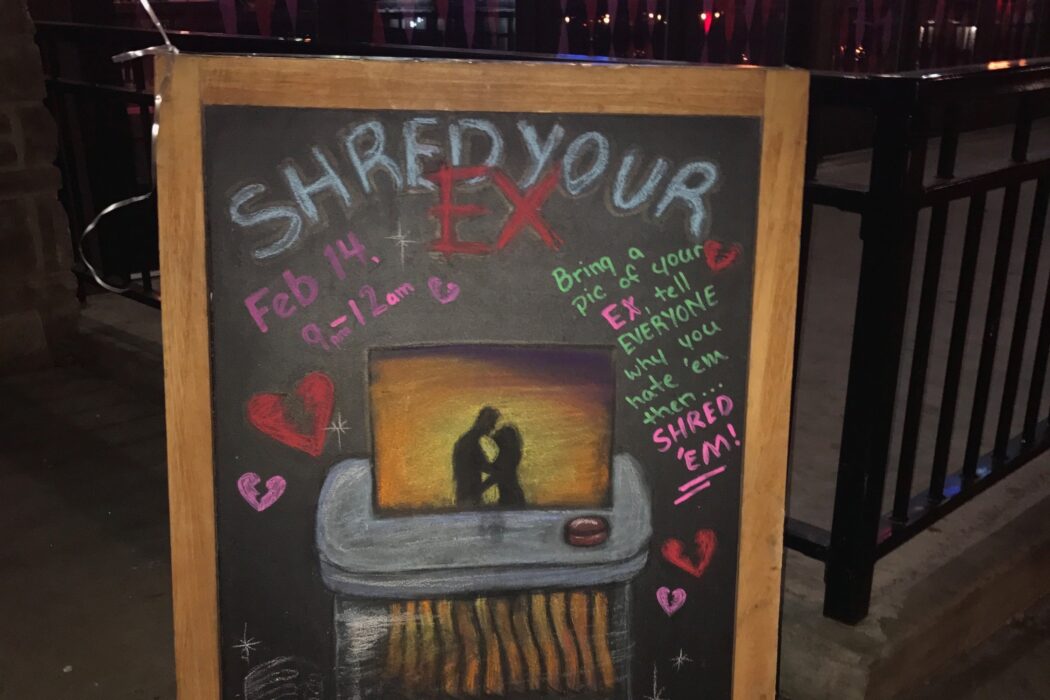 SHRED YOUR
EX
Feb 14.
9pm-12am
Bring a
pic of your
EX, tell
EVERYONE
why you
hate 'em
then...
SHRED
'EM!